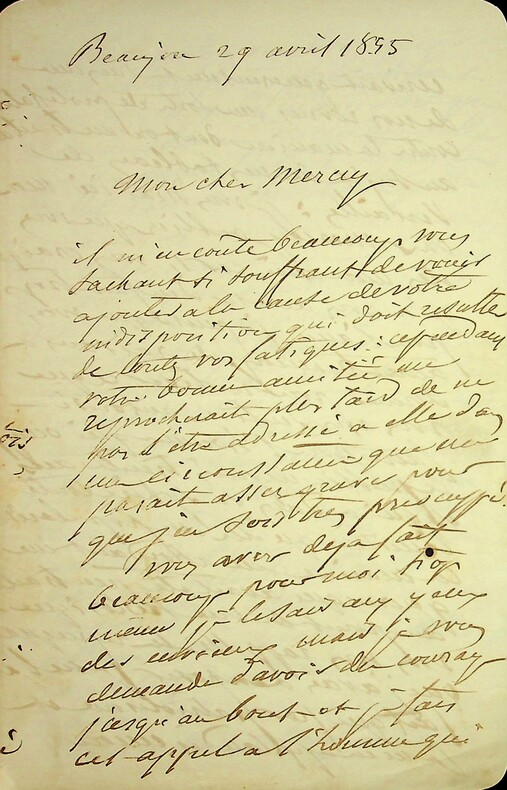 Beaujon 29 avril 1855
Mon cher Mercey
il m'en coute beaucoup vous
sachant si souffrant de venir
ajouter a la cause de votre
indisposition qui doit resulter
de toutes vos fatiques : cependant
votre bonne amitié me
reprocherait plus tard de ne
pas l'etre adressé a elle dans
une circonstance qui me
parait assez grave pour
que j'en sois tres preocuppé.
vous avez deja fait
beaucoup pour moi trop
meme je le sais aux yeux
des envieux mais je vous
demande d'avoir du courage
jusqu'au bout et je fais
cet appel a l'homme qui